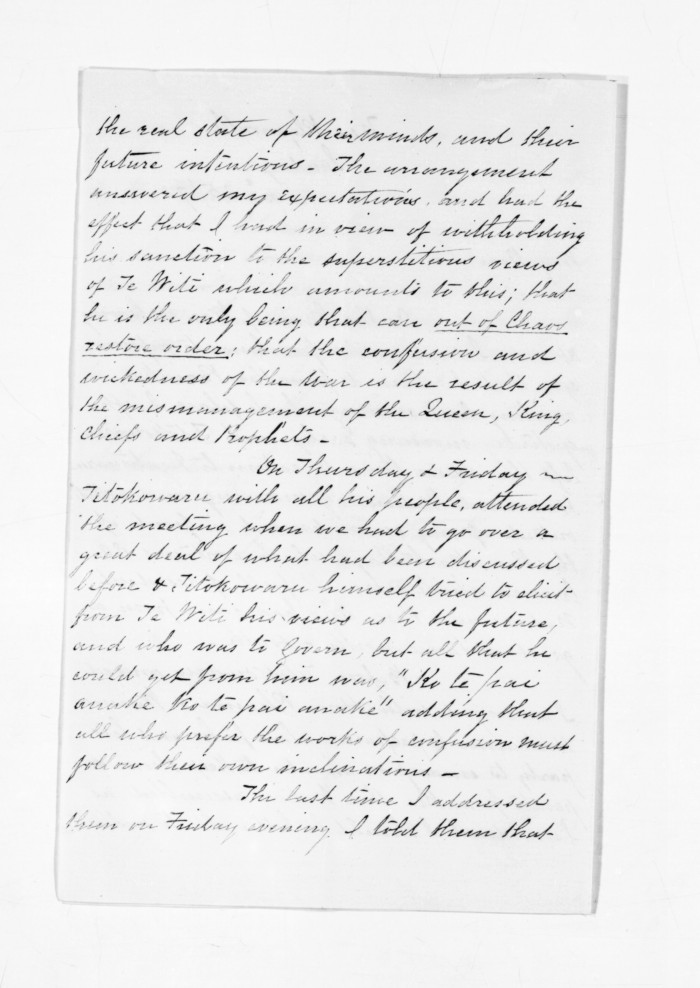 the real state of their minds, and their
future intentions - The arrangement
answered my expectations, and had the
effect that I had in view of withholding
his sanction to the superstitious views
of Te Witi which amounts to this; that
he is the only being that can out of Chaos
restore order; that the confusion and
wickedness of the war is the result of
the mismanagement of the Queen, King,
Chiefs and Prophets -
On Thursday & Friday
Titokowaru with all his people, attended
the meeting when we had to go over a
great deal of what had been discussed
before & Titokowaru himself tried to elicit
from Te Witi his views as to the future,
and who was to Govern, but all that he
could get from him was, "Ko te pai
anake Ko te pai anake" adding that
all who prefer the works of confusion must
follow their own inclinations -
The last time I addressed
them on Friday evening I told them that